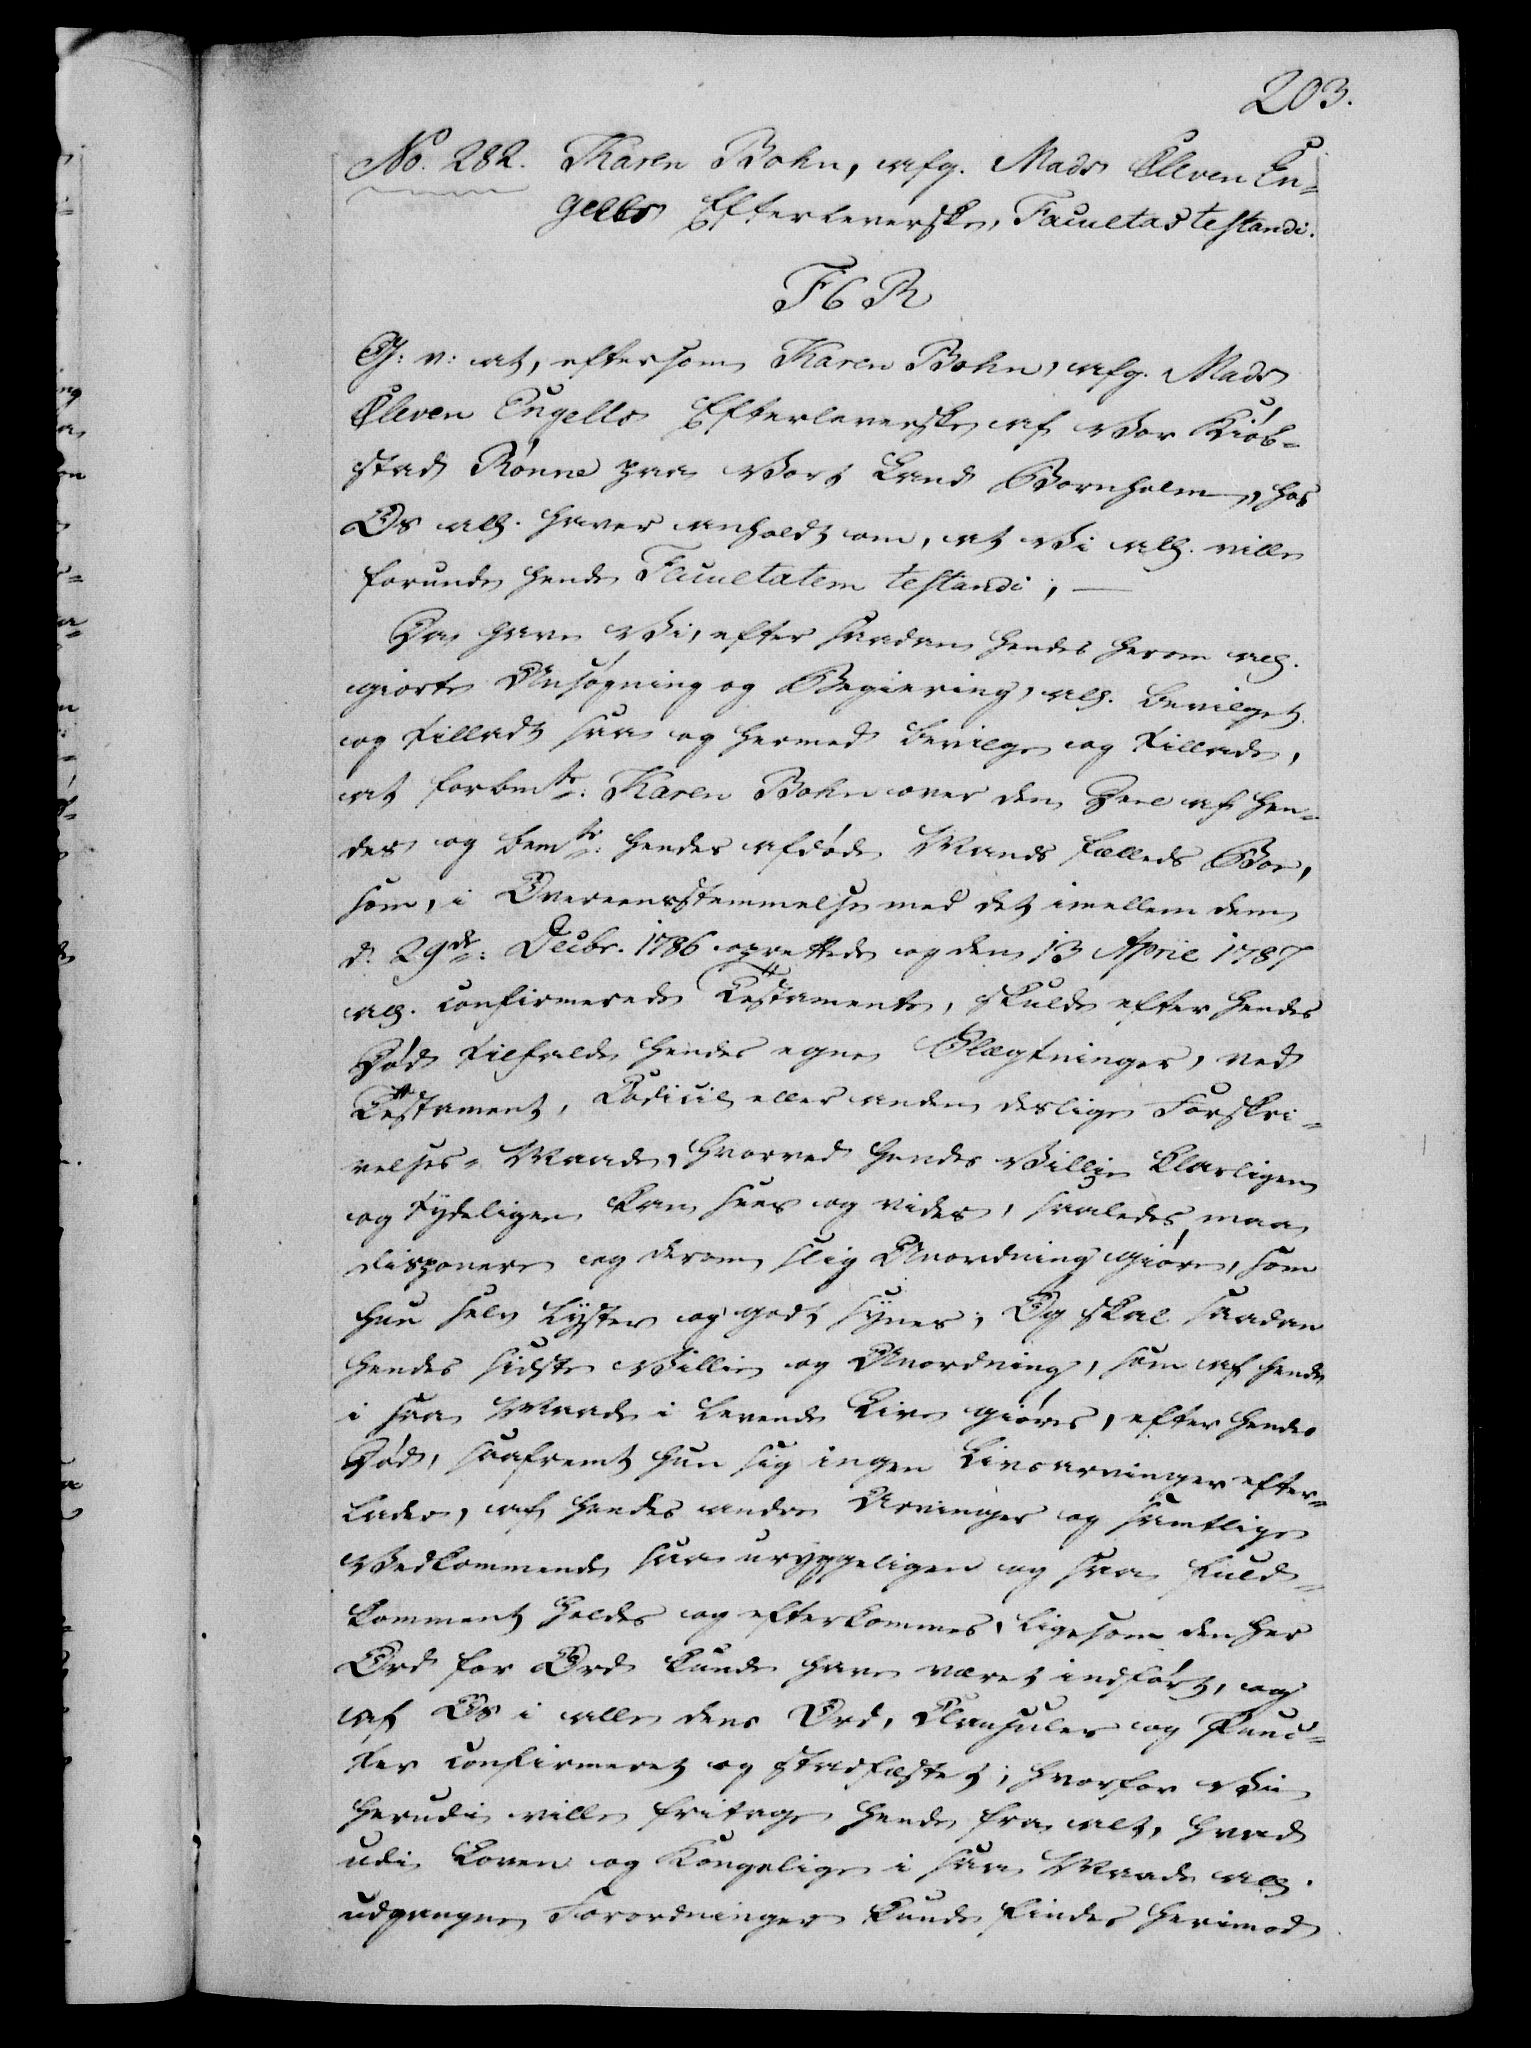 203.
No. 282. Karen Bohn, afg. Mads Cleven En¬
gells Efterleverske, Facultas testandi.
F 6 R
G: v: at, eftersom Karen Bohn, afg. Mads
Cleven Engells Efterleverske af Vor Kiøb¬
stad Rønne paa Vort Land Bornholm, hos
Os all. haver anholdt om, at Vi all. ville
forunde hende Facultatem testandi; —
Da have Vi, efter saadan hendes herom all.
giorte Ansøgning og Begiering, all. bevilget
og tilladt saa og hermed bevilge og tillade,
at forbmte: Karen Bohn over den Deel af hen¬
des og bemte: hendes afdøde Mands fælleds Boe,
som, i Overeensstemmelse med det imellem dem
d. 29de: Decbr. 1786 oprettede og den 13 April 1787
all. confirmerede Testamente, skulde efter hendes
Død tilfalde hendes egne Slægtninger, ved
Testament, Codicil eller anden deslige Forskri¬
velses-Maade, hvorved hendes Villie klarligen
og tydeligen kan sees og vides, saaledes maa
disponere og derom slig Anordning giøre, som
hun selv lyster og godt synes; Og skal saadan
hendes sidste Villie og Anordning, som af hende
i saa Maade i levende Live giøres, efter hendes
Død, saafremt hun sig ingen Livsarvinger efter¬
lader, af hendes andre Arvinger og samtlige
Vedkommende saa uryggeligen og saa fuld¬
komment holdes og efterkommes, ligesom den her
Ord for Ord kunde have været indført, og
af Os i alle dens Ord, Clausuler og Punc¬
ter confirmeret og stadfæstet; hvorfor Vi
herudi ville fritage hende fra alt, hvad
udi Loven og Kongelige i saa Maade all.
udgangne Forordninger kunde findes herimod